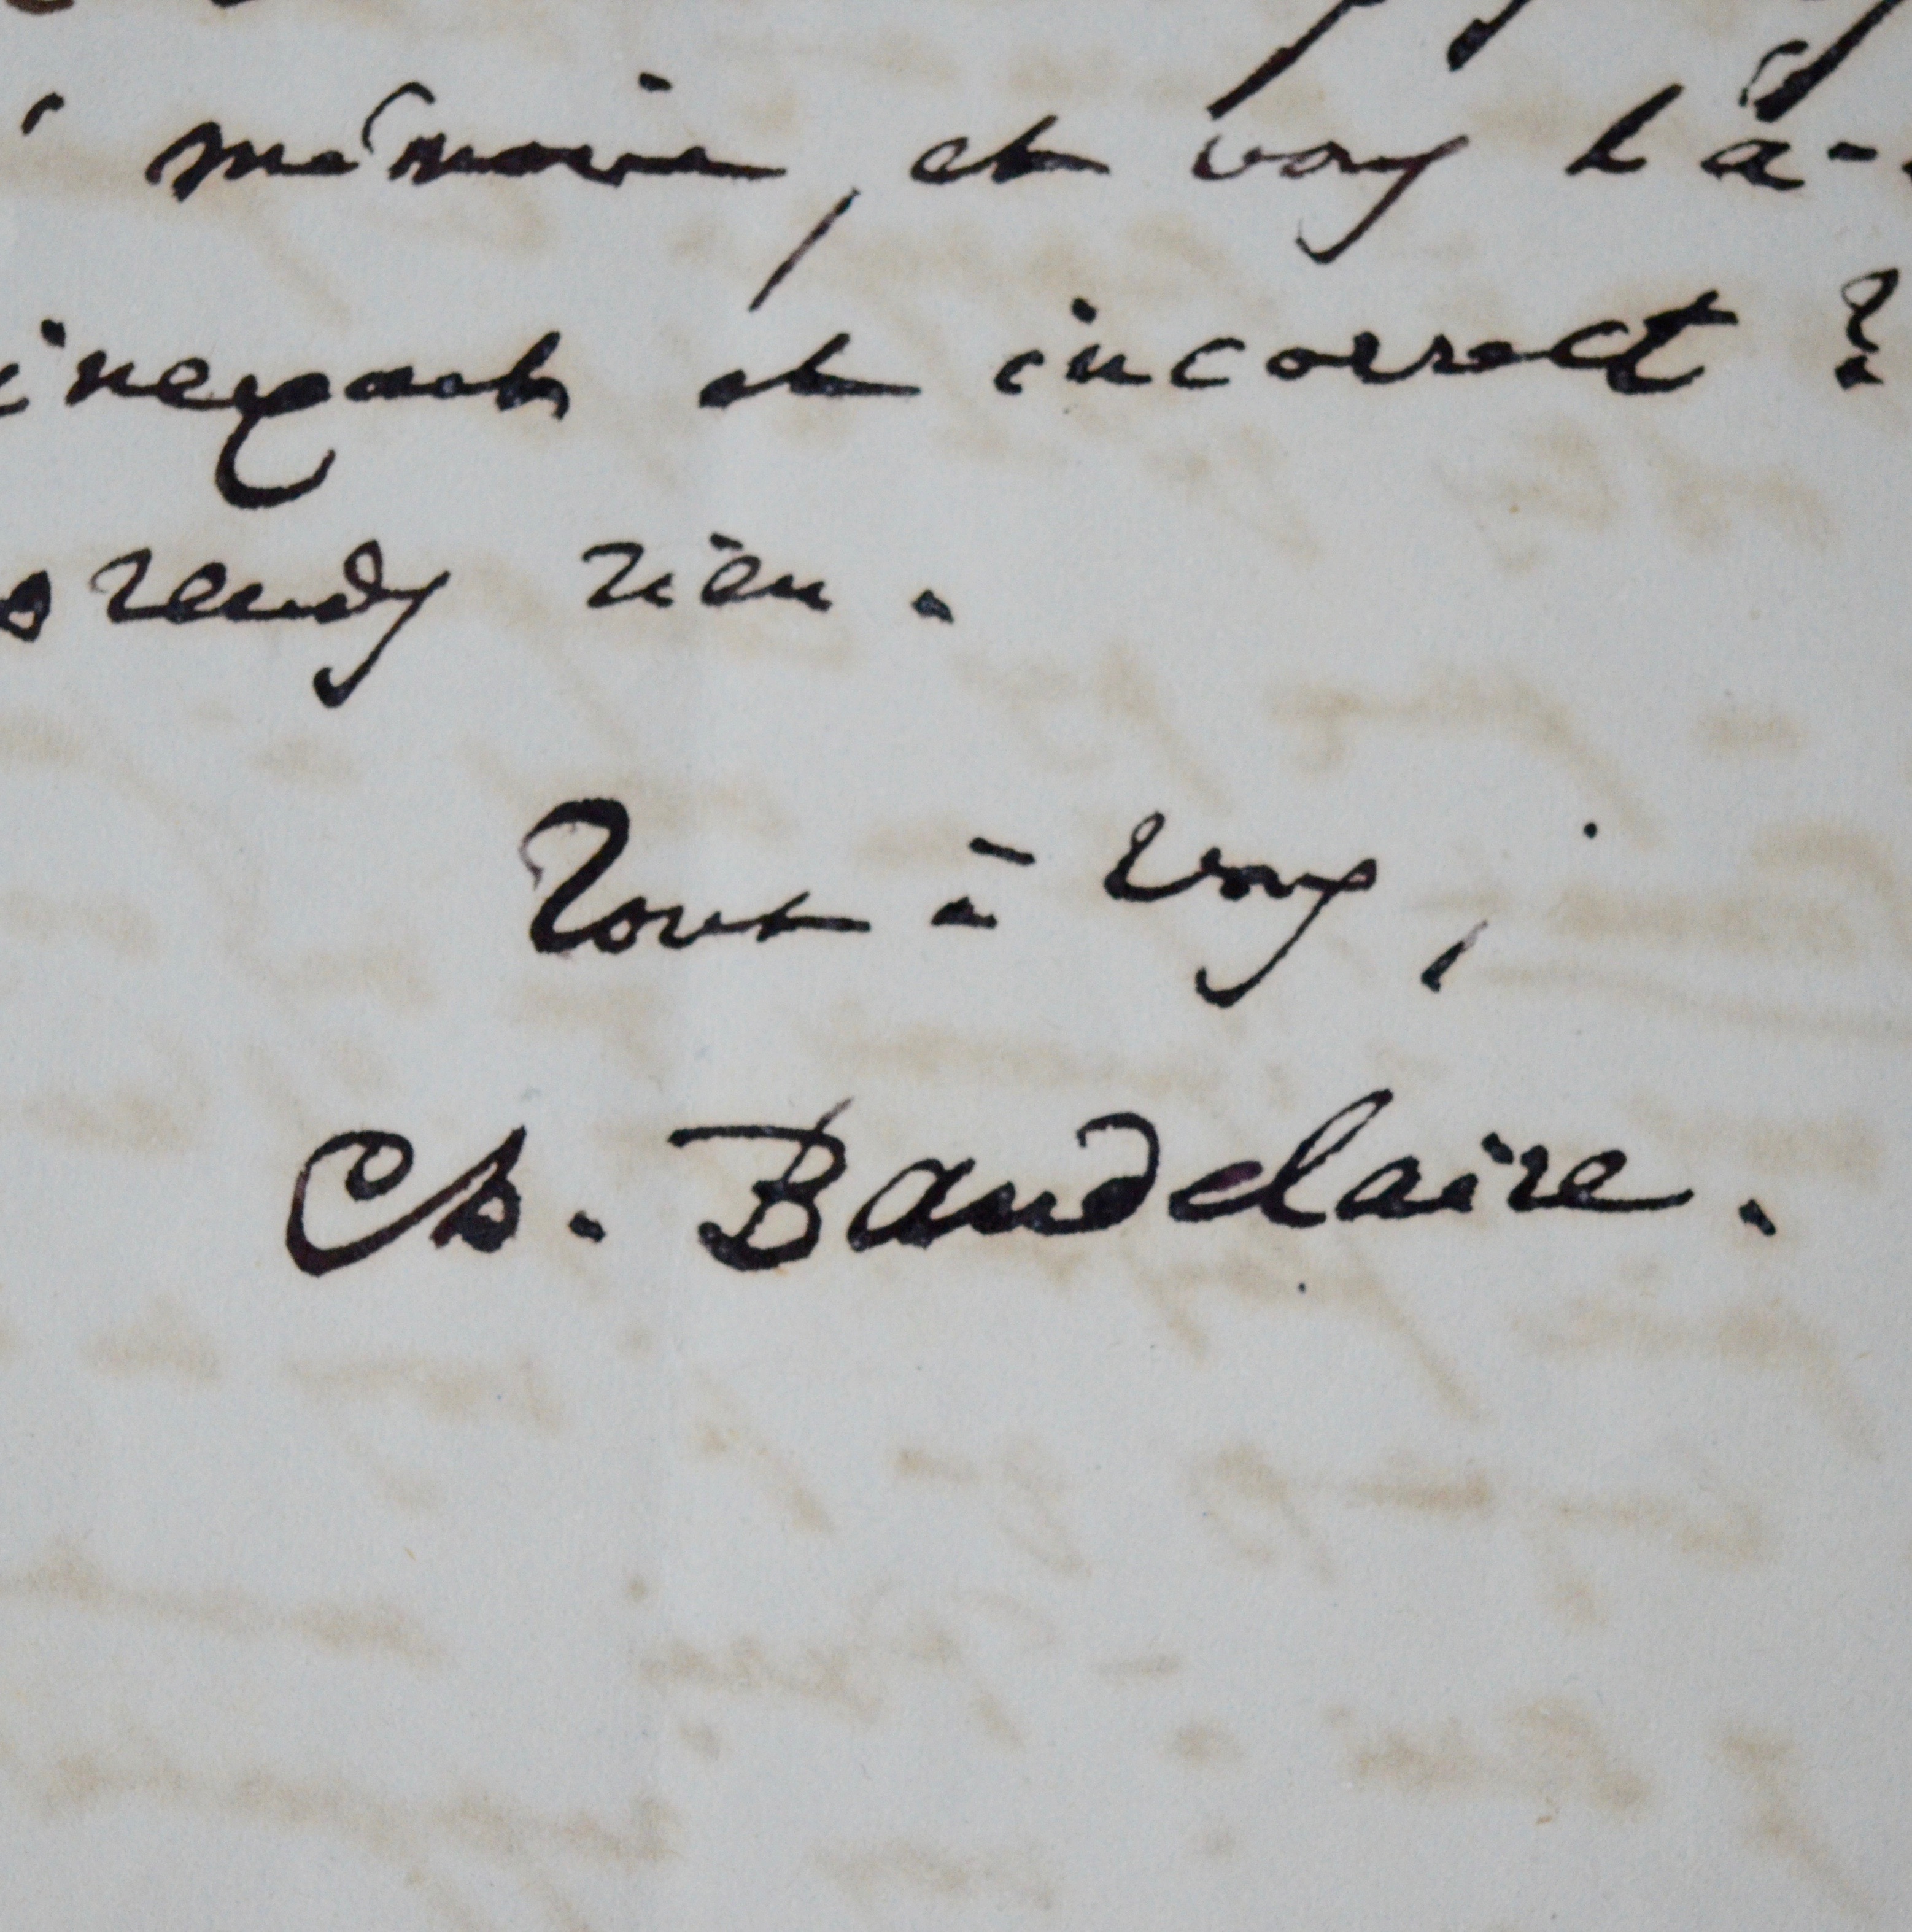 mémoire, et vous l'a-
inexact et incorrect ?
prends rien.
Tout à vous,
Ch. Baudelaire.